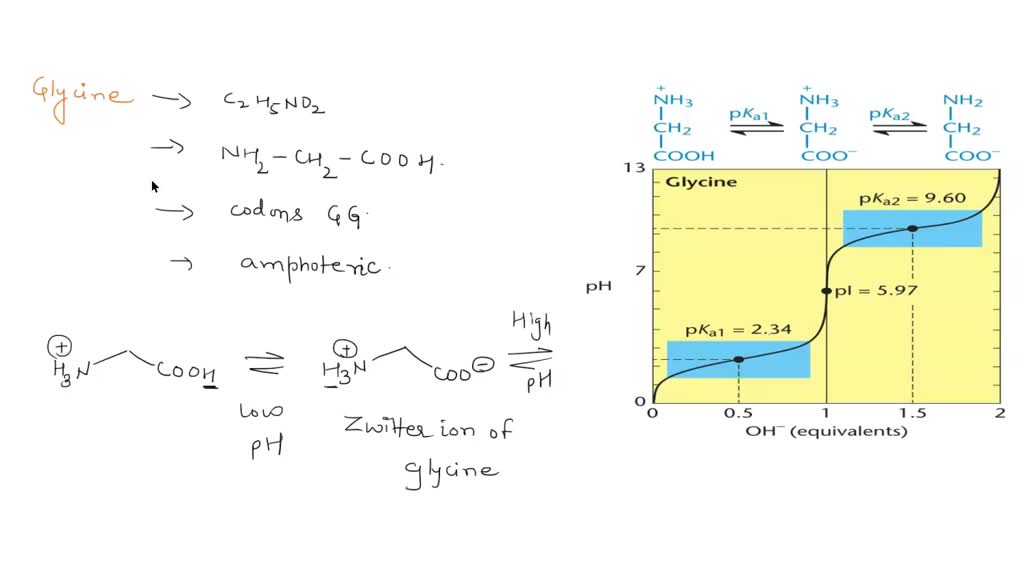 Glycine → C2H5NO2
→ NH2 – CH2 – COOH.
→ codons GG.
→ amphoteric.
H3N⊕ COOH ⇌ H3N⊕ COO⊖ ⇌
Low pH
High pH
Zwitter ion of
glycine
+NH3 +NH3 NH2
pKa1 pKa2
CH2 CH2 CH2
COOH COO− COO−
Glycine
13
7
0
pH
pKa2 = 9.60
pI = 5.97
pKa1 = 2.34
0 0.5 1 1.5 2
OH− (equivalents)